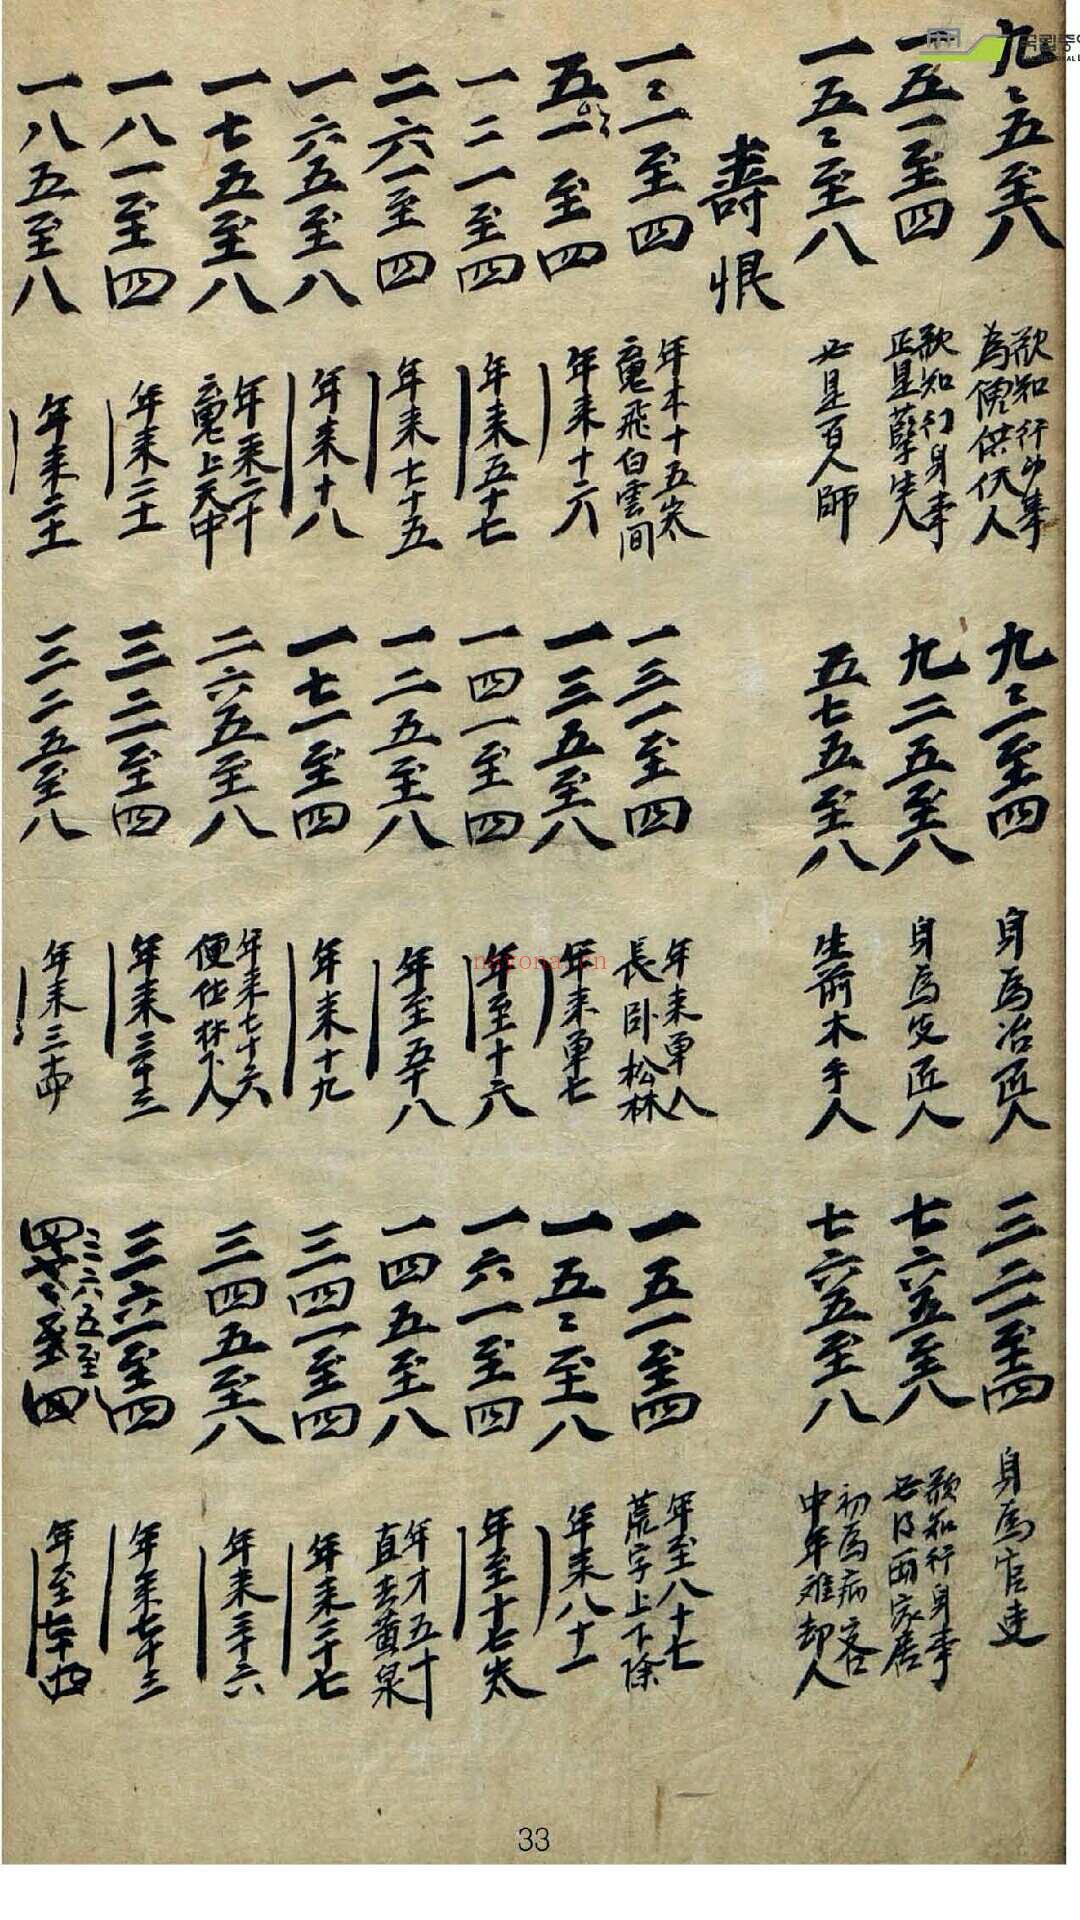 九二五至八
欲知行身事
為傭供伏人
九二一至四
身為冶匠人
三二一至四
身為官吏
一五一至四
欲知行身事
正是孽生人
九二五至八
身為皮匠人
七六五至八
欲知行身事
必得兩家居
一五二至八
必是百人師
五七五至八
生前木手人
七六五至八
初為病客
中年难却人
壽恨
一二一至四
年本十五岁
魂飛白雲间
一三一至四
年来
長卧松林
一五一至四
年至八十七
荒字上下除
五一至四
年来十六
一三五至八
年来
一五二至八
年来八十一
一二一至四
年来五十七
一四一至四
年至十六
一六一至四
年至十七岁
二六一至四
年来七十五
一二五至八
年至五十八
一四五至八
年才五十
直去黄泉
一六五至八
年来十八
一七一至四
年来十九
三四一至四
年来二十七
一七五至八
年来二十
魂上天中
二六五至八
年来七十六
便作林下人
三四五至八
年来三十六
一八一至四
年来二十
三二一至四
年来三十三
三六一至四
年来七十三
一八五至八
年来二十
三二五至八
年来三十四
三六五至八
年至七十四
33